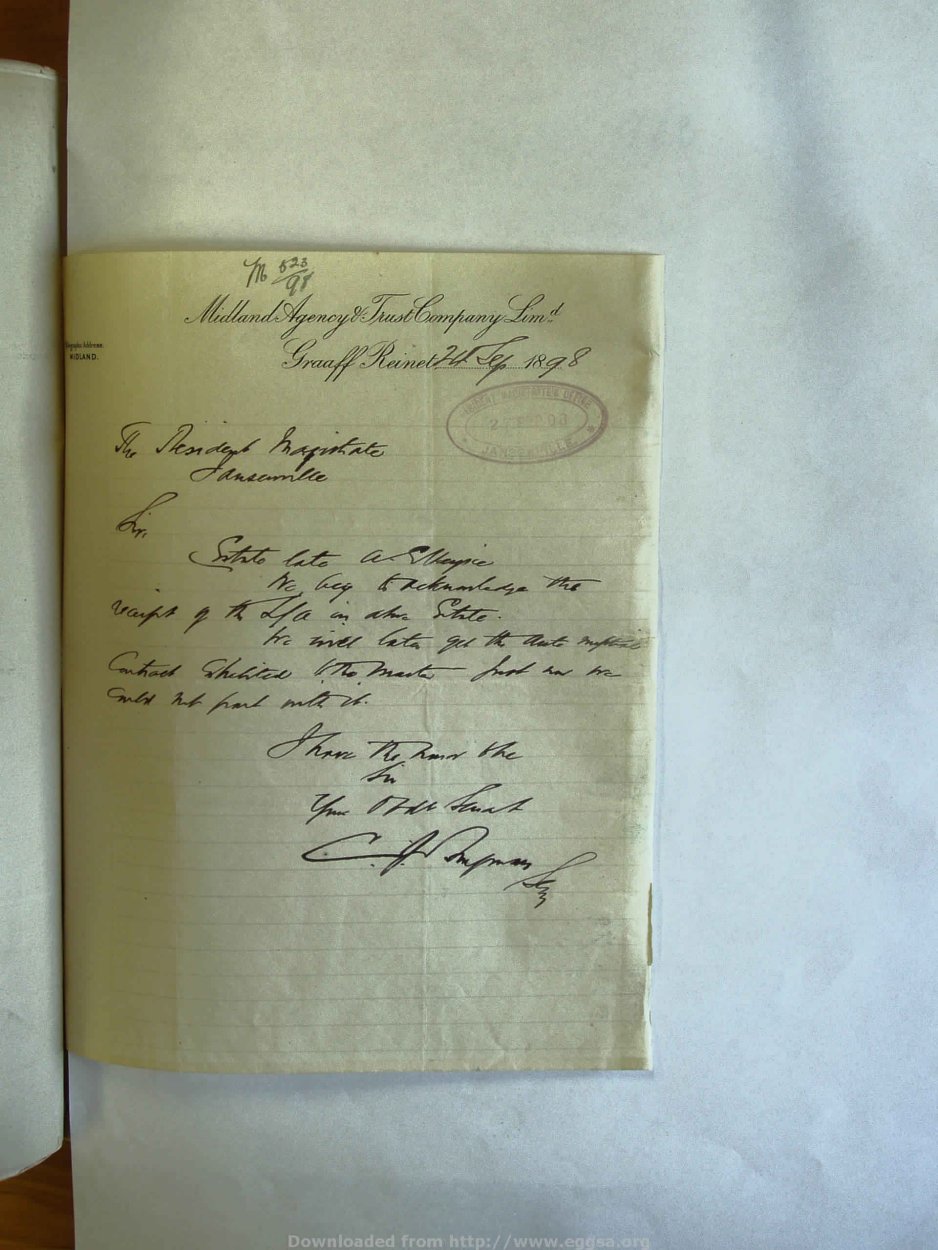 M 523/98
Midland Agency & Trust Company Lim.d
Telegraphic Address.
MIDLAND.
Graaff Reinet Sep 1898
RESIDENT MAGISTRATES OFFICE
JANSENVILLE
The Resident Magistrate
Jansenville
Sir,
Estate late A.
We beg to acknowledge the
receipt of the L/A in above Estate.
We will later get the Ante nuptial
Contract exhibited to the Master just now we
could not part with it.
I have the honor to be
Sir
Your Obdt Servant
C. J.
Secy
Downloaded from http://www.eggsa.org